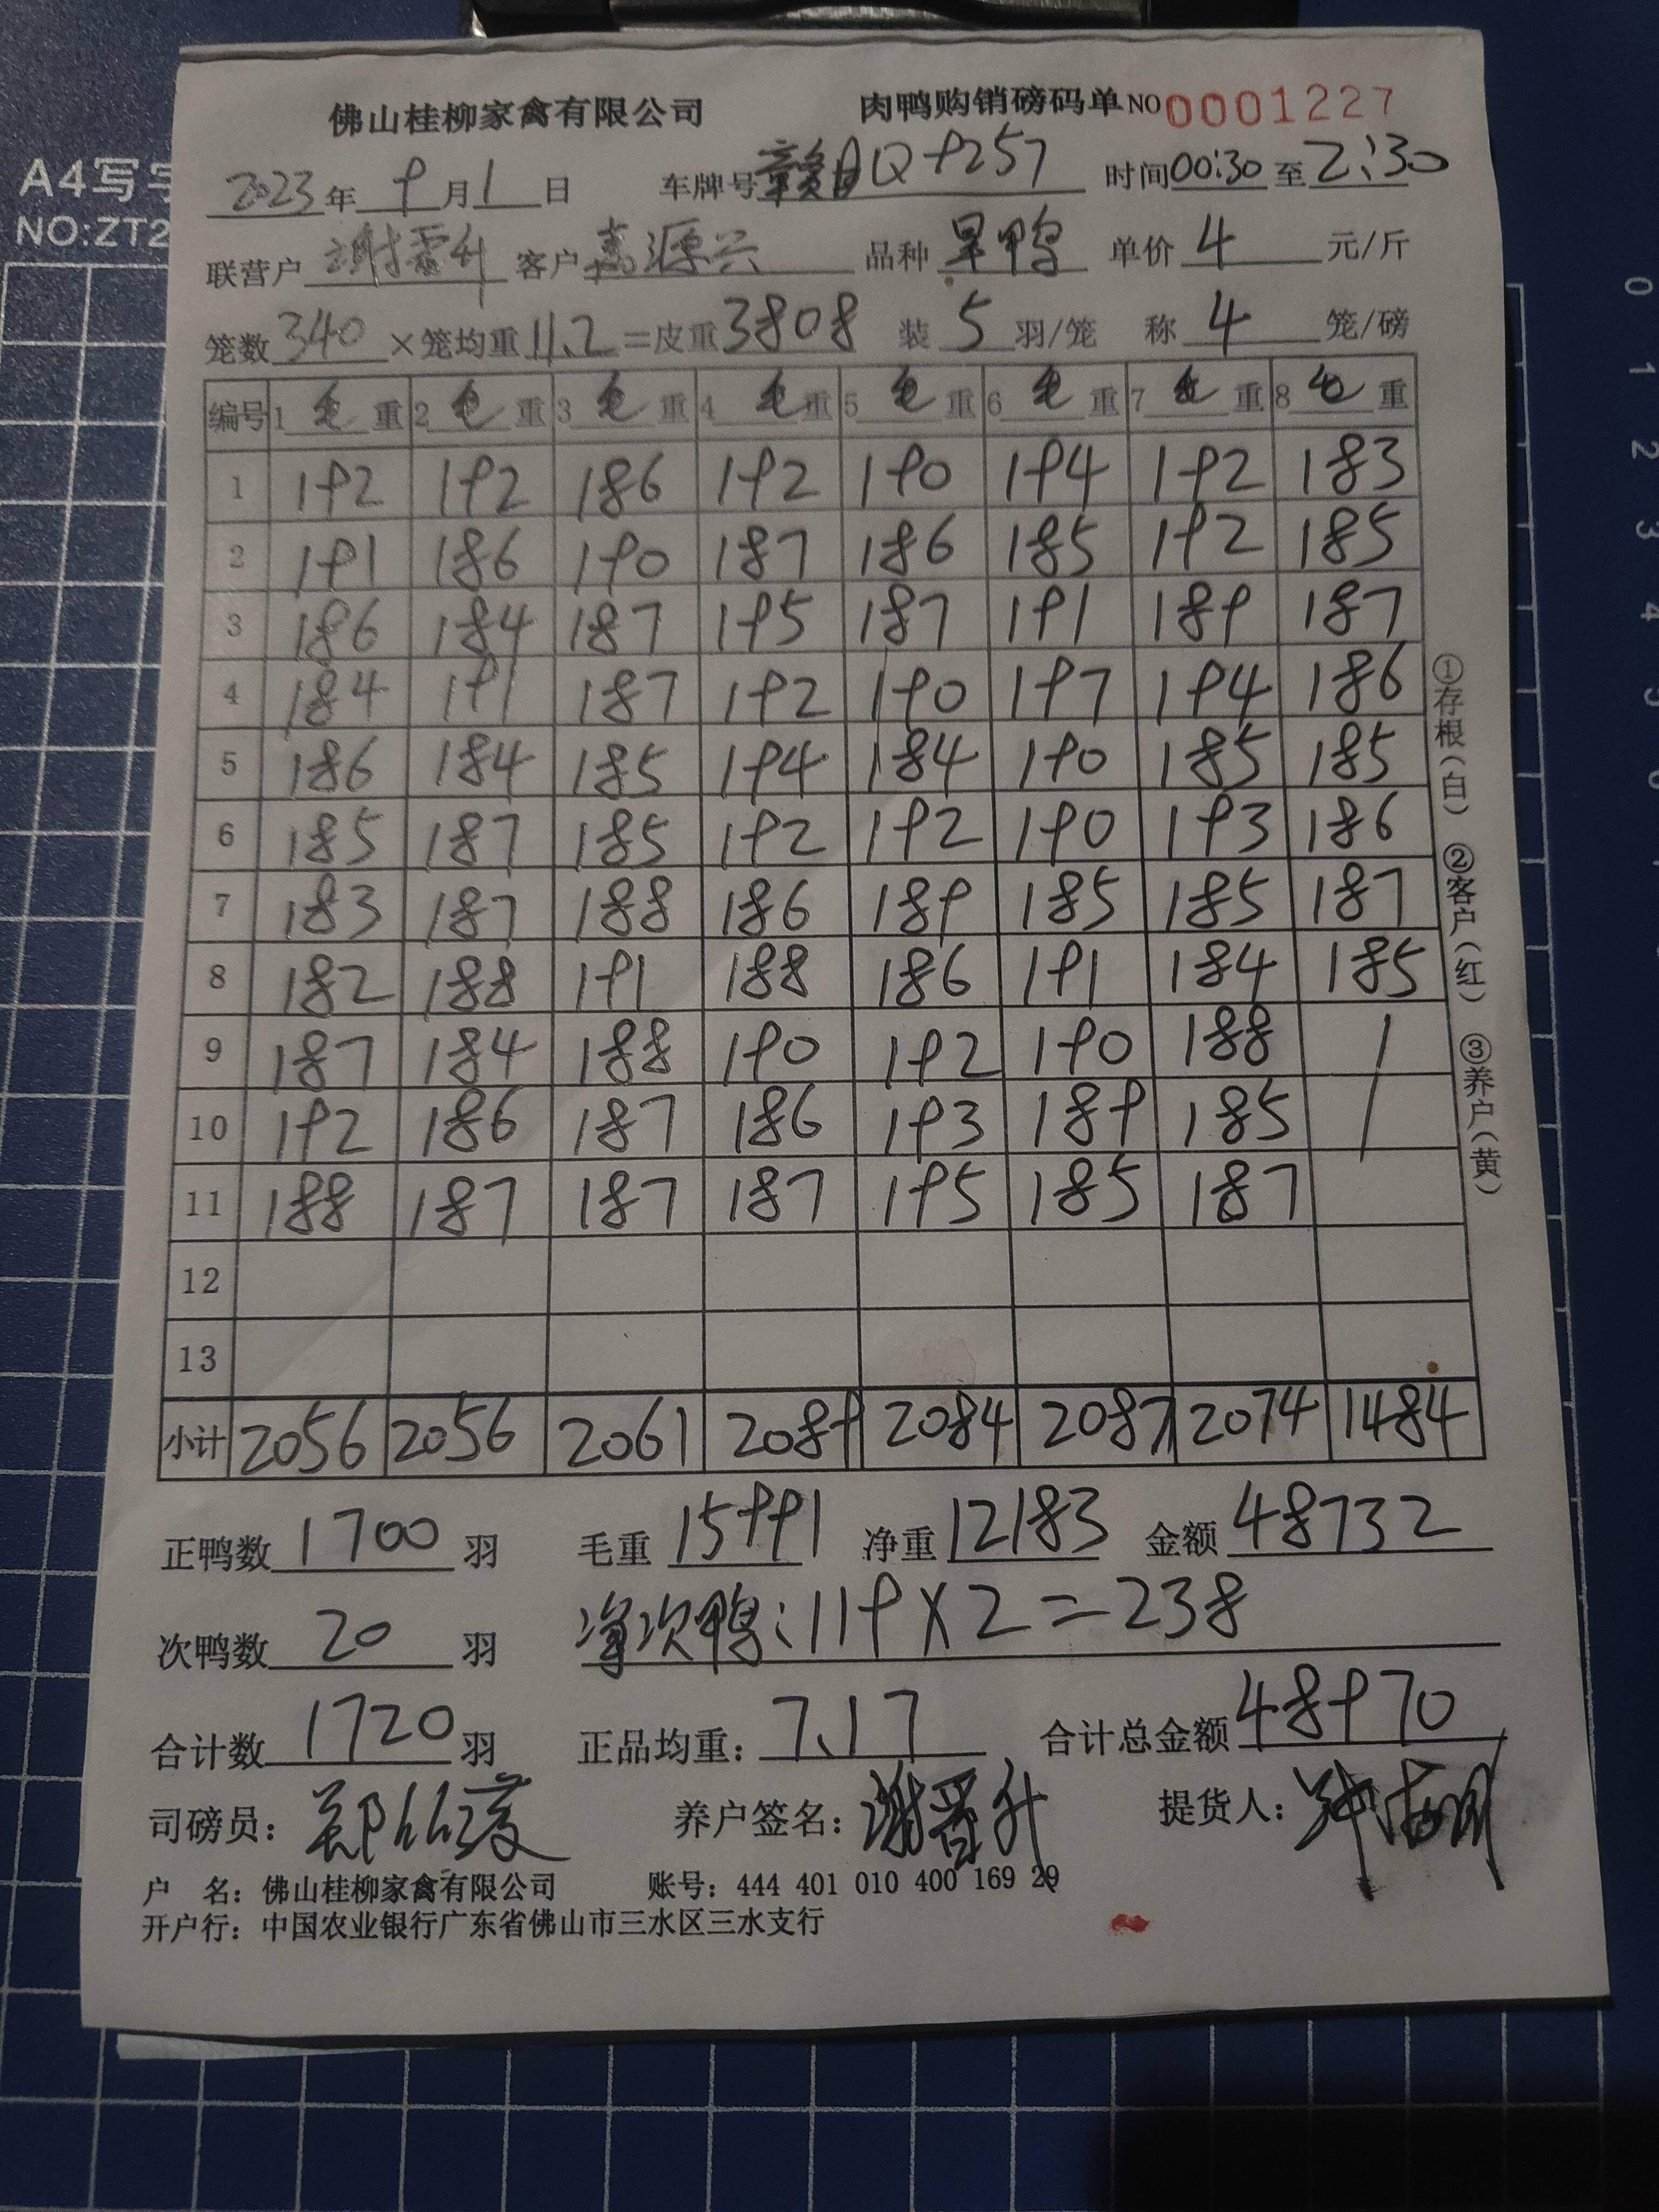 A4写字
NO:ZT2
佛山桂柳家禽有限公司 肉鸭购销磅码单 NO 0001227
2023年9月1日 车牌号赣AQ9257 时间00:30至2:30
联营户 谢晋升 客户 嘉源兴 品种 旱鸭 单价 4 元/斤
笼数340×笼均重11.2=皮重3808 装5羽/笼 称4笼/磅
编号 1毛重 2毛重 3毛重 4毛重 5毛重 6毛重 7毛重 8毛重
1 192 192 186 192 190 194 192 183
2 191 186 190 187 186 185 192 185
3 186 184 187 195 187 191 189 187
4 184 191 187 192 190 197 194 186
5 186 184 185 194 184 190 185 185
6 185 187 185 192 192 190 193 186
7 183 187 188 186 189 185 185 187
8 182 188 191 188 186 191 184 185
9 187 184 188 190 192 190 188 /
10 192 186 187 186 193 189 185 /
11 188 187 187 187 195 185 187
12
13
小计 2056 2056 2061 2089 2084 2087 2074 1484
①存根(白) ②客户(红) ③养户(黄)
正鸭数1700羽 毛重15991 净重12183 金额48732
次鸭数20羽 净次鸭:119×2=238
合计数1720羽 正品均重:7.17 合计总金额48970
司磅员: 养户签名:谢晋升 提货人:
户 名:佛山桂柳家禽有限公司 账号:444 401 010 400 169 29
开户行:中国农业银行广东省佛山市三水区三水支行
0
1
2
3
4
5
6